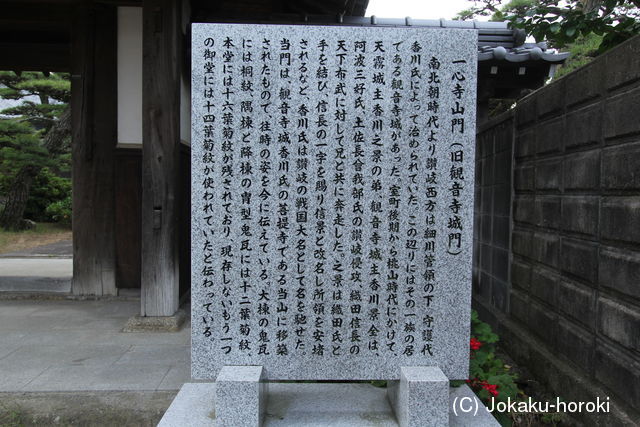 一心寺山門（旧観音寺城門）
南北朝時代より讃岐西方は細川管領の下、守護代
香川氏によって治められていた。この辺りにはその一族の居城
である観音寺城があった。室町後期から桃山時代にかけて、
天霧城主香川之景の弟、観音寺城主香川景全は、
阿波三好氏、土佐長曾我部氏の讃岐侵攻、織田信長の
天下布武に対して兄と共に奔走した。之景は織田氏と
手を結び、信長の一字を賜り信景と改名し所領を安堵
されるなど、香川氏は讃岐の戦国大名として名を馳せた。
当門は、観音寺城香川氏の菩提寺である当山に移築
されたもので、往時の姿を今に伝えている。大棟の鬼瓦
には桐紋、隅棟と降棟の冑型鬼瓦には十二葉菊紋、
本堂には十六葉菊紋が残されており、現存しないもう一つ
の御堂には十四葉菊紋が使われていたと伝わっている。
(C) Jokaku-horoki